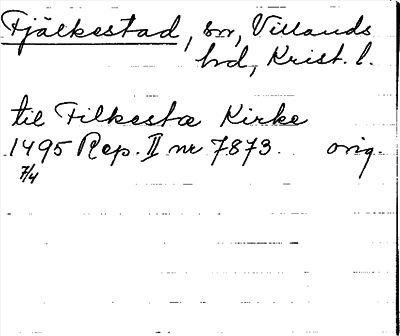 Fjälkestad, sn, Villands
hd, Krist. l.
til Filkestæ Kirke
1495 Rep. II nr 7873. orig.
7/4